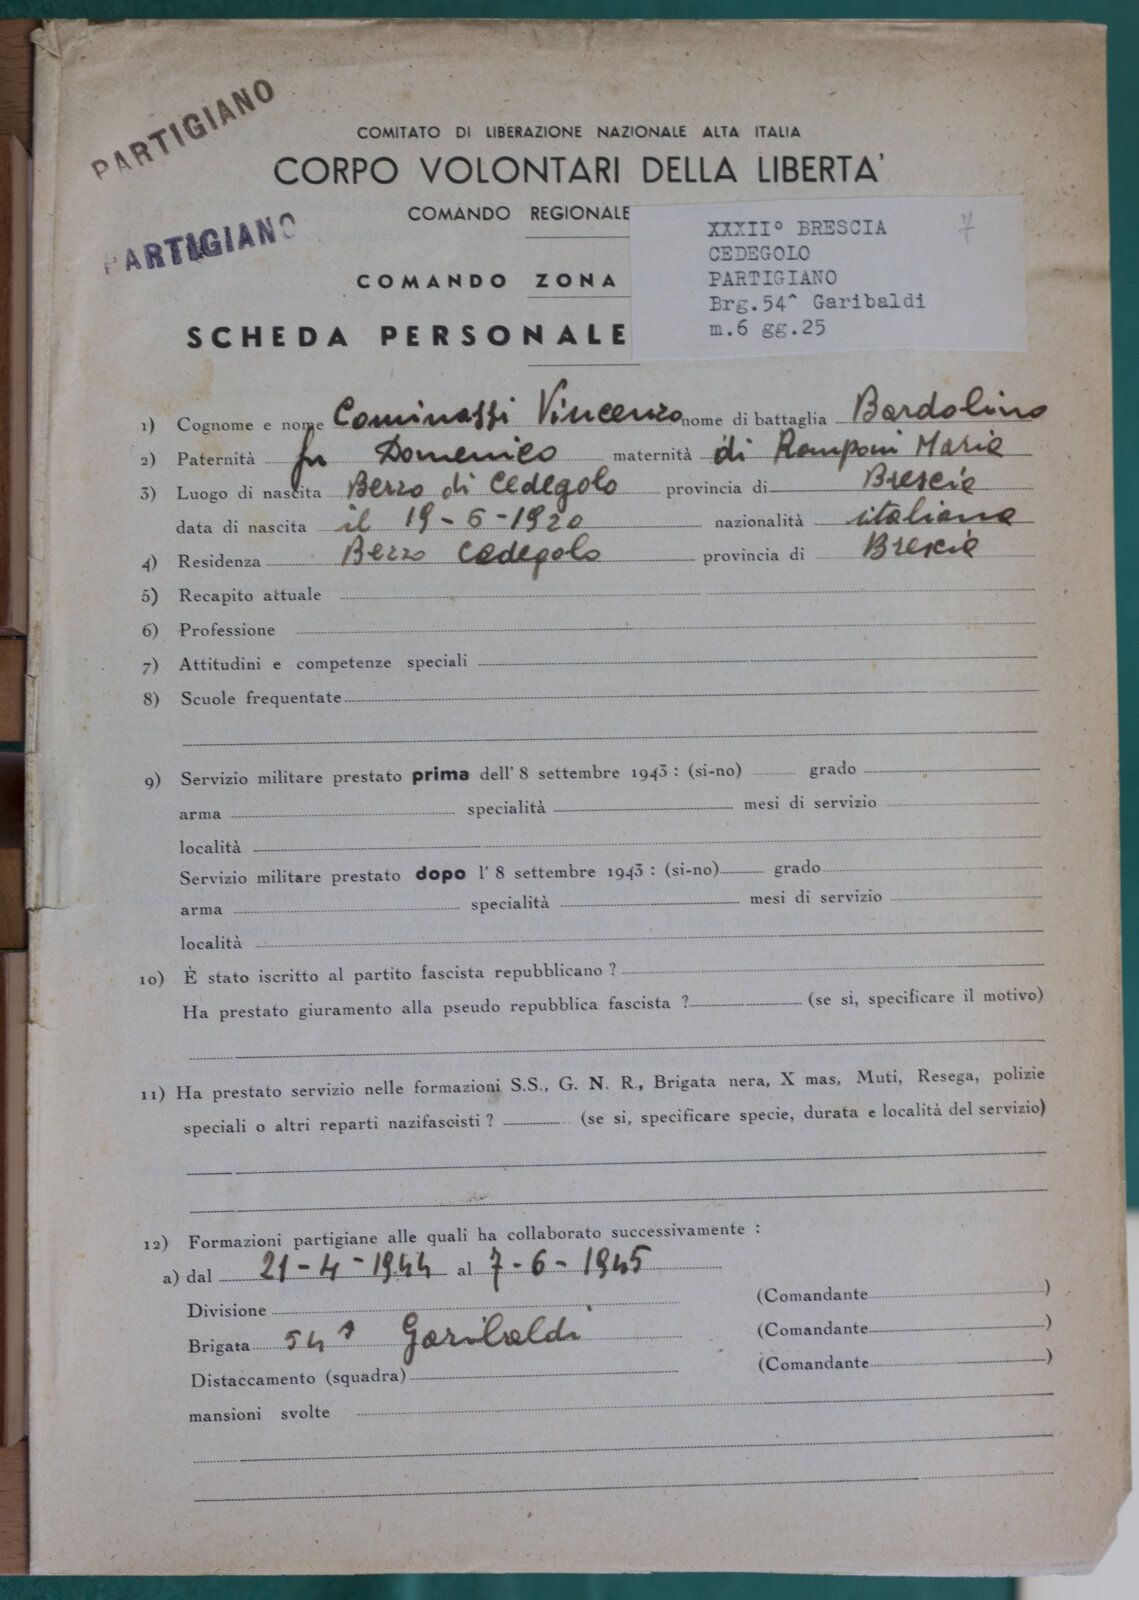 PARTIGIANO
COMITATO DI LIBERAZIONE NAZIONALE ALTA ITALIA
CORPO VOLONTARI DELLA LIBERTA'
COMANDO REGIONALE
PARTIGIANO
XXXII° BRESCIA 7
CEDEGOLO
PARTIGIANO
Brg.54^ Garibaldi
m.6 gg.25
COMANDO ZONA
SCHEDA PERSONALE
1) Cognome e nome Cominassi Vincenzo nome di battaglia Bardolino
2) Paternità fu Domenico maternità di Ramponi Maria
3) Luogo di nascita Berzo di Cedegolo provincia di Brescia
data di nascita il 19-6-1920 nazionalità italiana
4) Residenza Berzo Cedegolo provincia di Brescia
5) Recapito attuale
6) Professione
7) Attitudini e competenze speciali
8) Scuole frequentate
9) Servizio militare prestato prima dell' 8 settembre 1943 : (si-no) grado
arma specialità mesi di servizio
località
Servizio militare prestato dopo l' 8 settembre 1943 : (si-no) grado
arma specialità mesi di servizio
località
10) È stato iscritto al partito fascista repubblicano ?
Ha prestato giuramento alla pseudo repubblica fascista ? (se si, specificare il motivo)
11) Ha prestato servizio nelle formazioni S.S., G. N. R., Brigata nera, X mas, Muti, Resega, polizie
speciali o altri reparti nazifascisti ? (se si, specificare specie, durata e località del servizio)
12) Formazioni partigiane alle quali ha collaborato successivamente :
a) dal 21-4-1944 al 7-6-1945
Divisione (Comandante )
Brigata 54ª Garibaldi (Comandante )
Distaccamento (squadra) (Comandante )
mansioni svolte